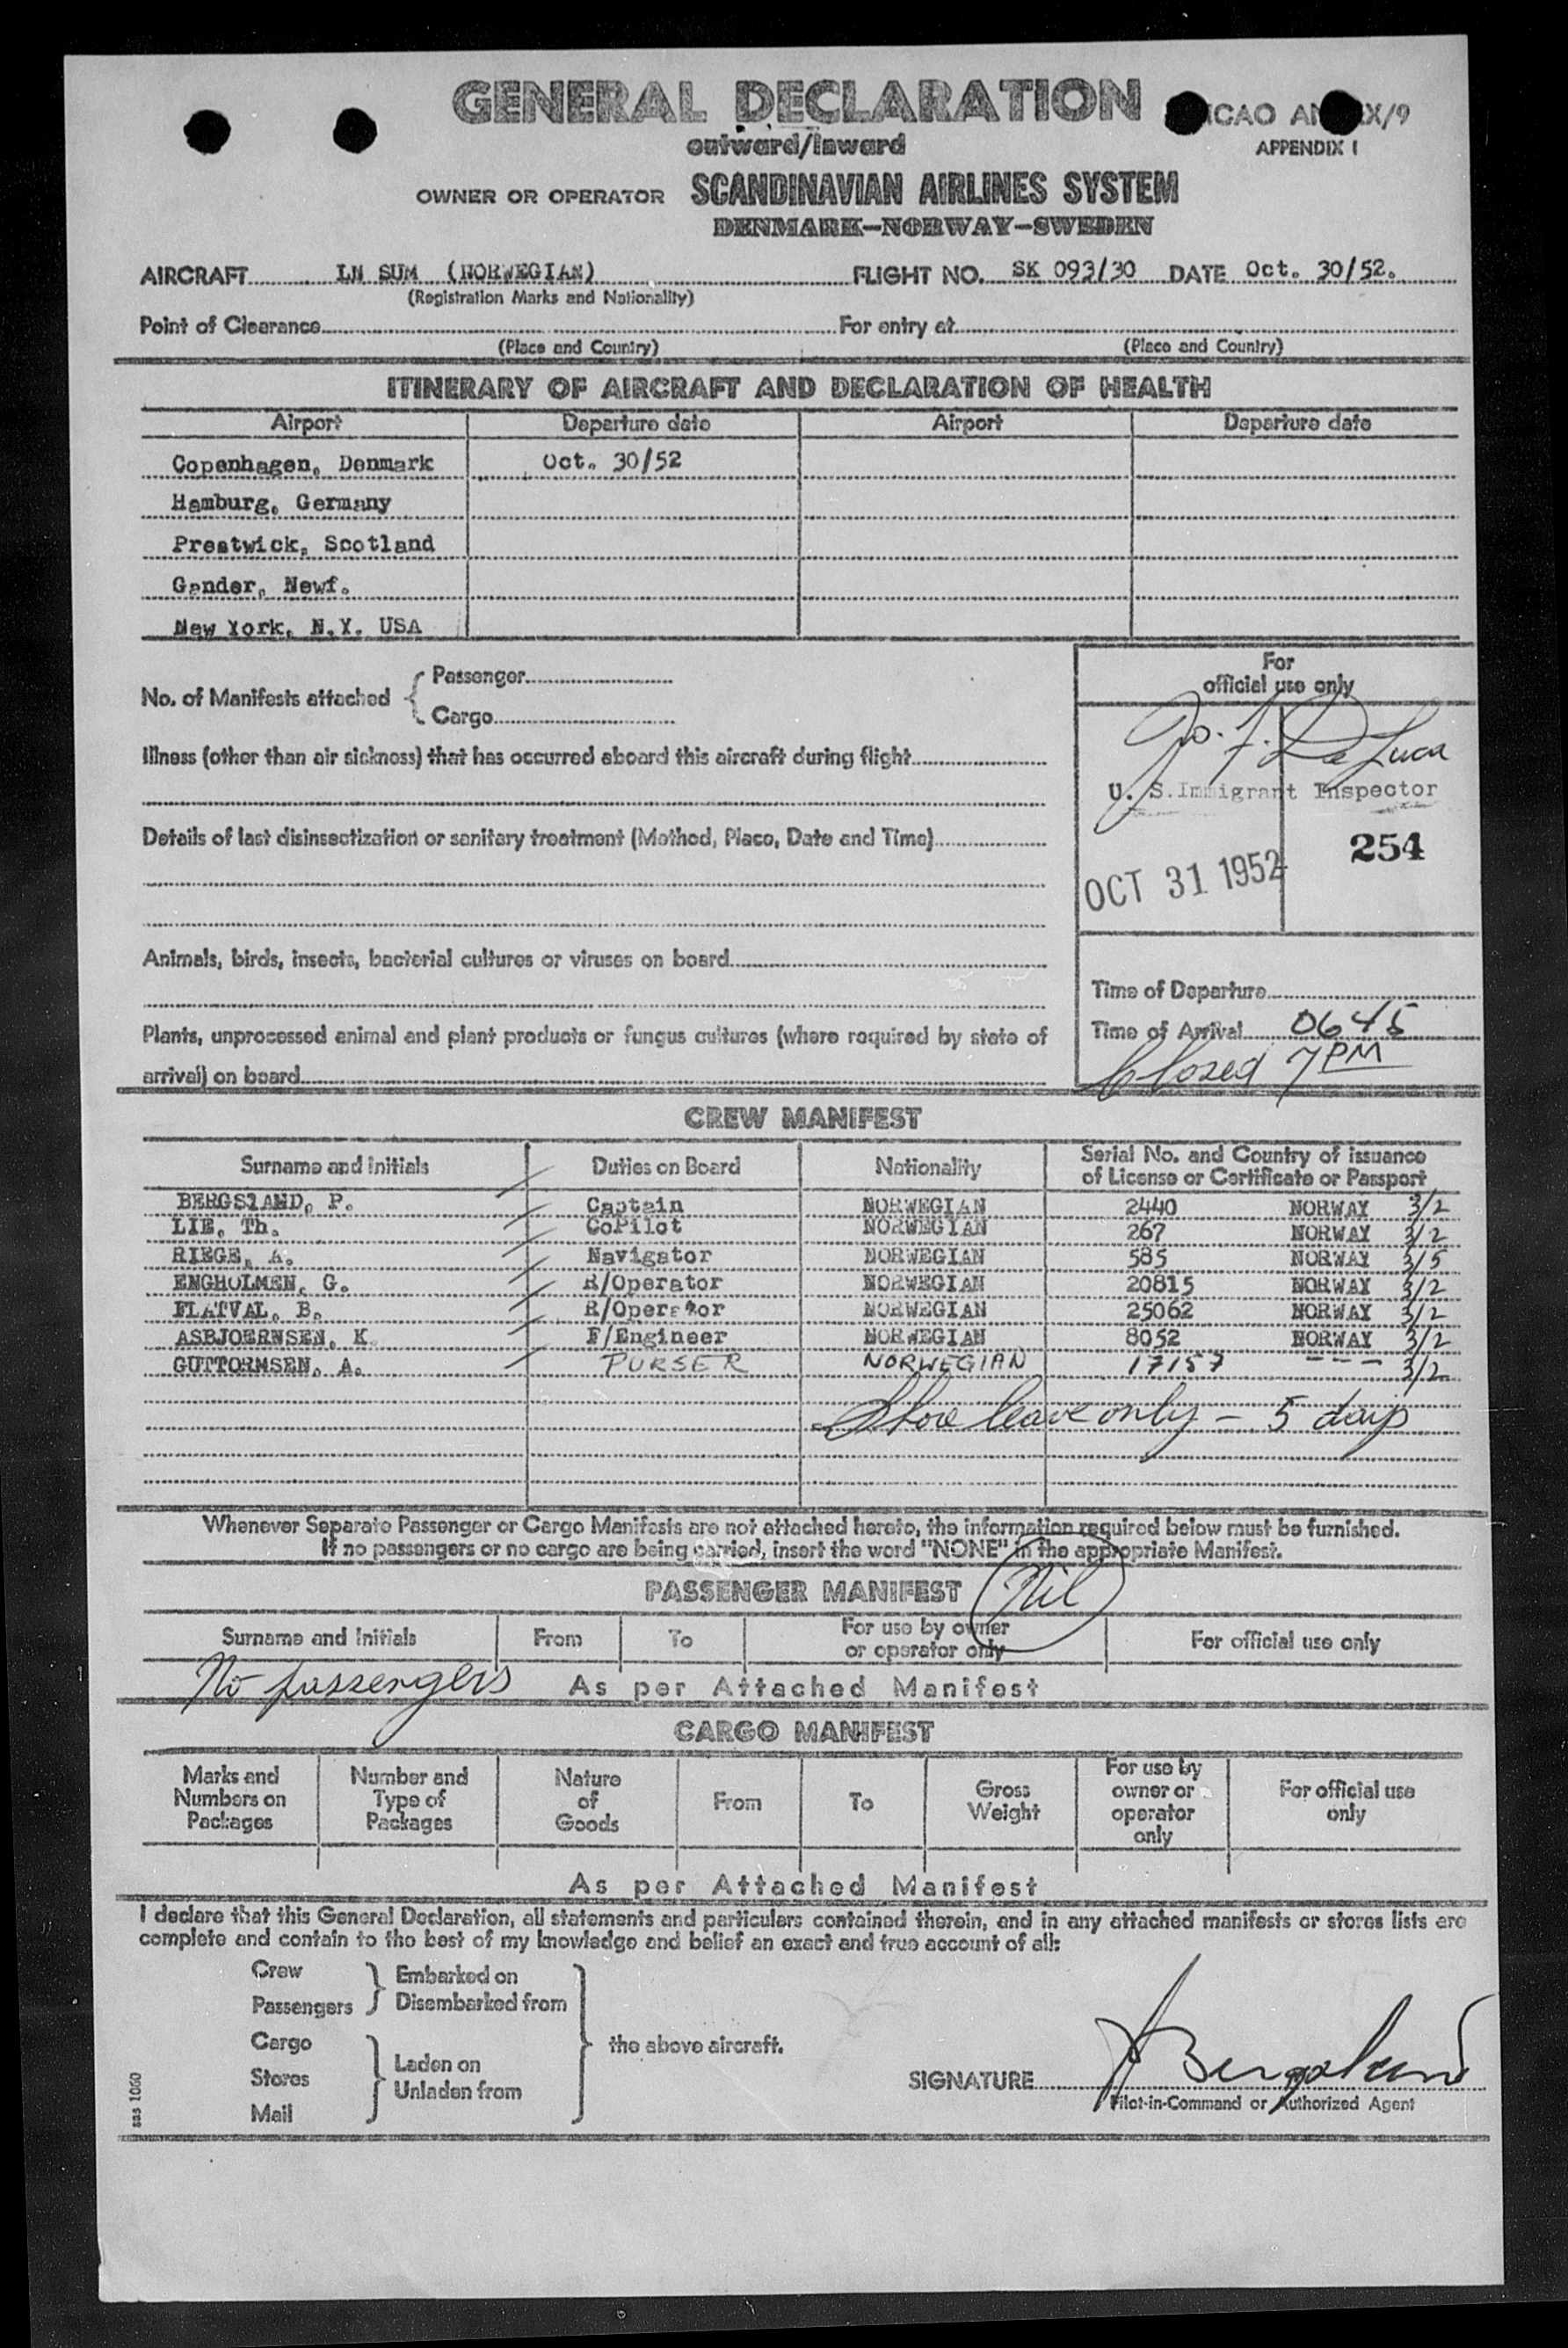 GENERAL DECLARATION
ICAO ANNEX/9
outward/inward
APPENDIX I
OWNER OR OPERATOR SCANDINAVIAN AIRLINES SYSTEM
DENMARK-NORWAY-SWEDEN
AIRCRAFT LN SUM (NORWEGIAN) FLIGHT NO. SK 093/30 DATE Oct. 30/52.
(Registration Marks and Nationality)
Point of Clearance For entry at
(Place and Country) (Place and Country)
ITINERARY OF AIRCRAFT AND DECLARATION OF HEALTH
Airport Departure date Airport Departure date
Copenhagen, Denmark Oct. 30/52
Hamburg, Germany
Prestwick, Scotland
Gander, Newf.
New York, N.Y. USA
No. of Manifests attached { Passenger
Cargo
Illness (other than air sickness) that has occurred aboard this aircraft during flight
Details of last disinsectization or sanitary treatment (Method, Place, Date and Time)
Animals, birds, insects, bacterial cultures or viruses on board
Plants, unprocessed animal and plant products or fungus cultures (where required by state of
arrival) on board
For
official use only
Jo. F. DeLuca
U. S. Immigrant Inspector
254
OCT 31 1952
Time of Departure
Time of Arrival 0645
Closed 7 PM
CREW MANIFEST
Surname and Initials Duties on Board Nationality Serial No. and Country of issuance
of License or Certificate or Passport
BERGSLAND, P. Captain NORWEGIAN 2440 NORWAY 3/2
LIE, Th. CoPilot NORWEGIAN 267 NORWAY 3/2
RIEGE, A. Navigator NORWEGIAN 585 NORWAY 3/5
ENGHOLMEN, G. R/Operator NORWEGIAN 20815 NORWAY 3/2
FLATVAL, B. R/Operator NORWEGIAN 25062 NORWAY 3/2
ASBJOERNSEN, K F/Engineer NORWEGIAN 8052 NORWAY 3/2
GUTTORMSEN, A. PURSER NORWEGIAN 17157 --- 3/2
Shore leave only - 5 days
Whenever Separate Passenger or Cargo Manifests are not attached hereto, the information required below must be furnished.
If no passengers or no cargo are being carried, insert the word "NONE" in the appropriate Manifest.
PASSENGER MANIFEST Nil
Surname and Initials From To For use by owner
or operator only For official use only
No passengers As per Attached Manifest
CARGO MANIFEST
Marks and
Numbers on
Packages
Number and
Type of
Packages
Nature
of
Goods
From
To
Gross
Weight
For use by
owner or
operator
only
For official use
only
As per Attached Manifest
I declare that this General Declaration, all statements and particulars contained therein, and in any attached manifests or stores lists are
complete and contain to the best of my knowledge and belief an exact and true account of all:
Crew
Passengers
Embarked on
Disembarked from
Cargo
Stores
Mail
Laden on
Unladen from
the above aircraft.
SIGNATURE P Bergsland
Pilot-in-Command or Authorized Agent
sas 1060